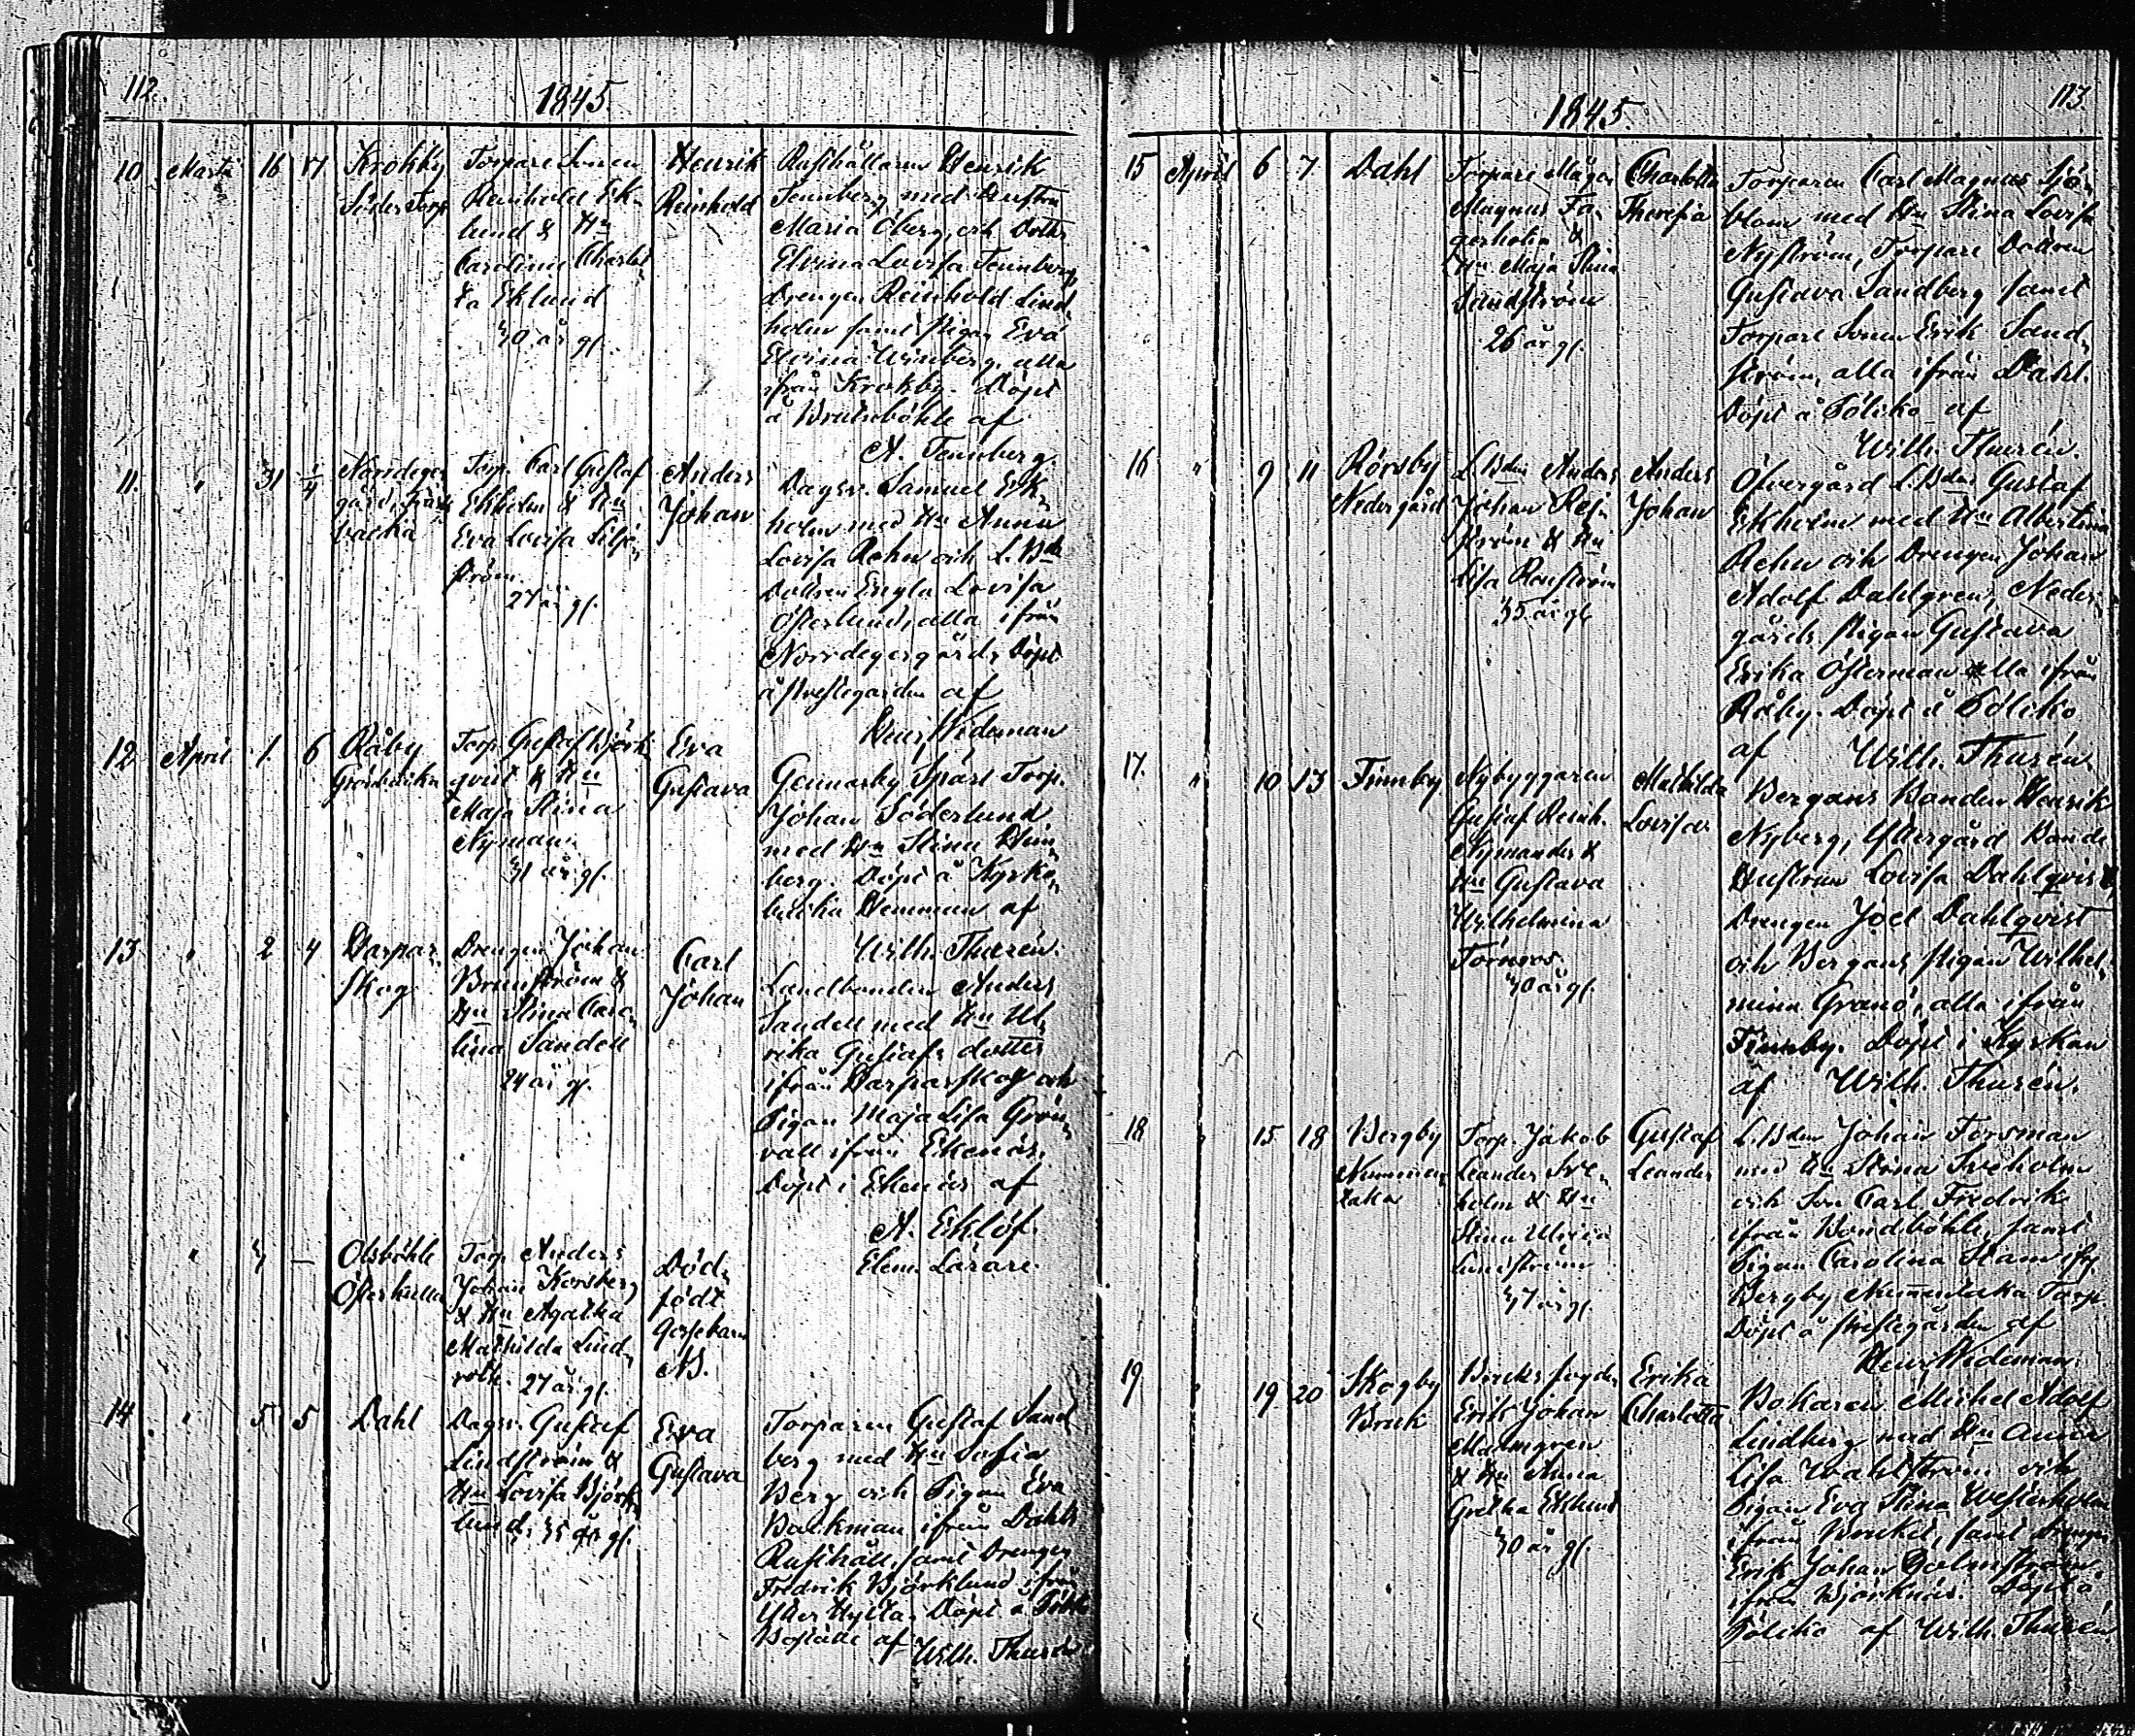 112.
1845
10 Martii 16 17 Krokby
Söder Torp
Torpare Sonen
Reinhold Ek-
lund & Hu
Carolina Charlot
ta Eklund
30 år gl.
Henrik
Reinhold
Rusthållaren Henrik
Tennberg med Hustru
Maria Öberg, och Dotter
Elvina Lovisa Tennberg,
Drengen Reinhold Lind-
holm samt Pigan Eva
Elvina Winberg, alla
ifrån Krokby. Döpt
å Brutuböhle af
A. Tennberg.
11. " 31 1/4
Torp. Carl Gustaf
Ekholm & Hu
Eva Lovisa Silfe,
ström.
27 år gl.
Anders
Johan
Dagsv. Samuel Ek-
holm med Hu Anna
Lovisa Rehn och L.Bde
Dottren Engla Lovisa
Österlund, alla ifrån
Norrdegergård, Döpt
å Prestegården af
Henr. Wideman
12 April 1. 6 Råby
Torp. Gustaf Björk
qvist & Hu
Maja Stina
Nyman.
31 år gl.
Eva
Gustava
Gennarby Spärt Torp.
Johan Söderlund
med Hu Stina Win,
berg. Döpt å Kyrko,
backa Hemman af
Wilh. Thurén.
13 " 2 4 Harpar,
skog
Drengen Johan
Brunström &
Hu Stina Caro,
lina Sandell
24 år gl.
Carl
Johan
Landbonden Anders
Sandell med Hu Ul,
rika Gustafs dotter
ifrån Harparskog och
Pigan Maja Lisa Grön,
vall ifrån Ekenäs.
Döpt i Ekenäs af
A. Eklöf.
Elem. Lärare.
" 3 — Olsböhle
Österkulla
Torp. Anders
Johan Korsberg
& Hu Agatha
Mathilda Lind,
roth. 27 år gl.
Död,
födt
Gossebarn
NB.
14 " 5 5 Dahl
Dagsv. Gustaf
Lindström &
Hu Lovisa Björk,
lund, 35 år gl.
Eva
Gustava
Torparen Gustaf Sand
berg med Hu Sofia
Berg och Pigan Eva
Backman ifrån Dahls
Rusthåll, samt Drengen
Fredrik Björklund ifrån
Ytter Hytta. Döpt å
Boställe af Wilh. Thurén
113.
1845.
15 April 6 7 Dahl
Torpare Mågen
Magnus Fa,
gerholm &
Hu Maja Stina
Sandström
26 år gl.
Charlotta
Theresia
Torparen Carl Magnus Sjö,
blom med Hu Stina Lovisa
Nyström, Torpare Dottren
Gustava Sandberg samt
Torpare Sonen Erik Sand,
ström, alla ifrån Dahl.
Döpt å Böliko af
Wilh. Thurén.
16 " 9 11 Rörsby
Nedergård
L.Bden Anders
Johan Rej,
ström & Hu
Lisa Renström
35 år gl.
Anders
Johan
Öfvergård L.Bden Gustaf
Ekholm med Hu Albertina
Rehn och Drengen Johan
Adolf Dahlgren, Neder,
gårds Pigan Gustava
Erika Österman alla ifrån
Råby. Döpt å Böliko
af Wilh. Thurén.
17. " 10 13 Finnby
Nybyggaren
Gustaf Reinh.
Nymander &
Hu Gustava
Wilhelmina
Törnroos.
30 år gl.
Mathilda
Lovisa.
Bergans Bonden Henrik
Nyberg, Yttergård Bonde
Hustrun Lovisa Dahlqvist,
Drengen Joel Dahlqvist
och Bergans Pigan Wilhel,
mina Granö, alla ifrån
Finnby. Döpt i Kyrkan
af Wilh. Thurén.
18 " 15 18 Bergby
Nummen,
taka
Torp. Jakob
Leander Sve,
holm & Hu
Stina Ulrica
Lundström
37 år gl.
Gustaf
Leander
L.Bden Johan Forsman
med Hu Stina Sveholm
och Son Carl Fredrik
ifrån Bondböhle, samt
Pigan Carolina Stam ifr.
Bergby Num̄entaka Torp.
Döpt å Prestegården af
Henr. Wideman.
19 " 19 20 Skogby
Bruk
Bruksfogden
Erik Johan
Malmgren
& Hu Anna
Gretha Eklund
30 år gl.
Erika
Charlotta
Bokaren Michel Adolf
Lindberg med Hu Anna
Lisa Wahlström och
Pigan Eva Stina Westerholm
ifrån Bruket, samt Drengen
Erik Johan Holmström
ifrån Björknäs. Döpt å
Böliko af Wilh. Thurén.